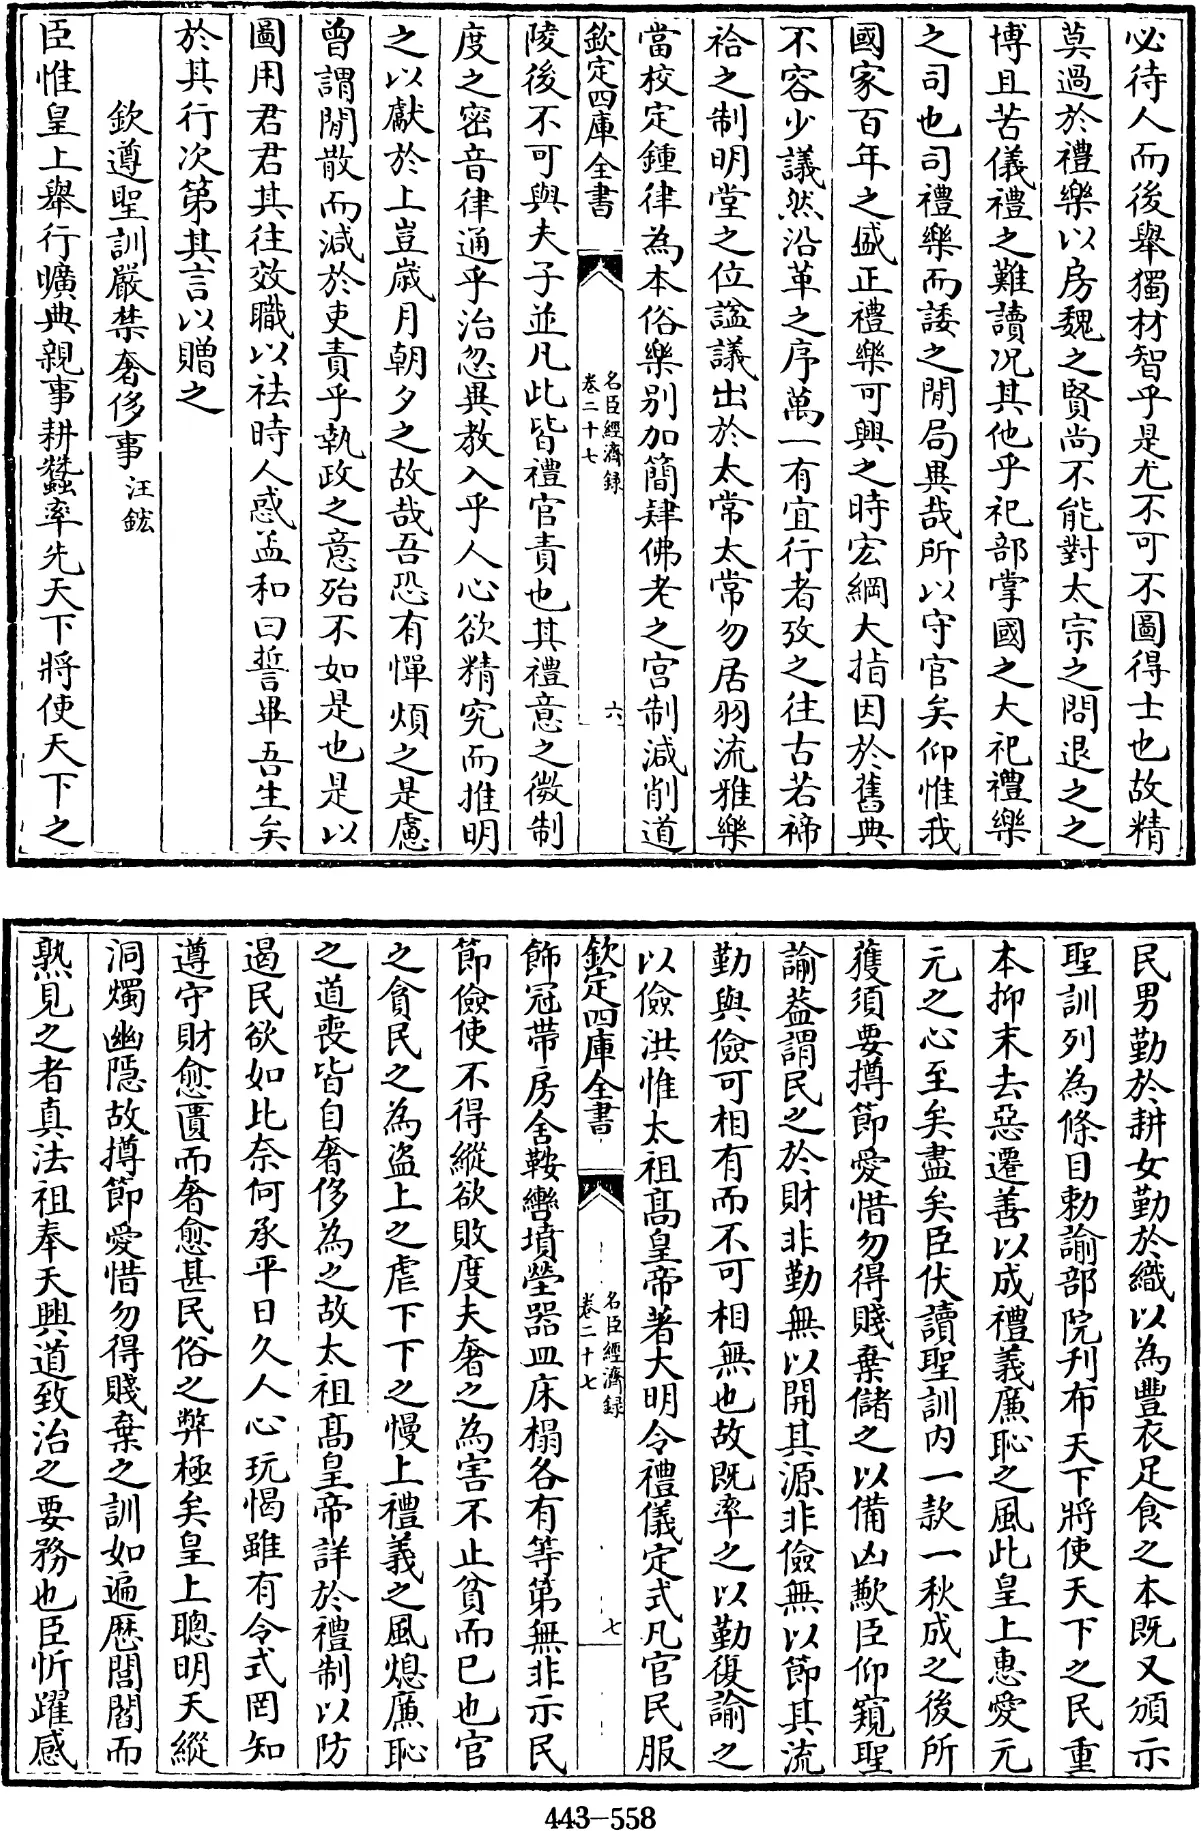 必待人而後舉獨材智乎是尤不可不圖得士也故精
莫過於禮樂以房魏之賢尚不能對太宗之問退之之
博且苦儀禮之難讀况其他乎祀部掌國之大祀禮樂
之司也司禮樂而諉之閒局異哉所以守官矣仰惟我
國家百年之盛正禮樂可興之時宏綱大指因於舊典
不容少議然沿革之序萬一有宜行者攷之往古若禘
祫之制明堂之位諡議出於太常太常勿居羽流雅樂
當校定鍾律為本俗樂別加簡肆佛老之宫制減削道
欽定四庫全書
名臣經濟録
卷二十七
六
陵後不可與夫子並凡此皆禮官責也其禮意之微制
度之密音律通乎治忽異教入乎人心欲精究而推明
之以獻於上豈歲月朝夕之故哉吾恐有憚煩之是慮
曾謂閒散而減於吏責乎執政之意殆不如是也是以
圖用君君其往效職以祛時人惑孟和曰誓畢吾生矣
於其行次第其言以贈之
欽遵聖訓嚴禁奢侈事 汪鋐
臣惟皇上舉行曠典親事耕蠶率先天下將使天下之
民男勤於耕女勤於織以為豐衣足食之本既又頒示
聖訓列為條目勅諭部院刋布天下將使天下之民重
本抑末去惡遷善以成禮義廉恥之風此皇上惠愛元
元之心至矣盡矣臣伏讀聖訓内一款一秋成之後所
獲須要撙節愛惜勿得賤棄儲之以備凶歉臣仰窺聖
諭葢謂民之於財非勤無以開其源非儉無以節其流
勤與儉可相有而不可相無也故既率之以勤復諭之
以儉洪惟太祖髙皇帝著大明令禮儀定式凡官民服
欽定四庫全書
名臣經濟録
卷二十七
七
飾冠帶房舍鞍轡墳塋器皿床榻各有等第無非示民
節儉使不得縱欲敗度夫奢之為害不止貧而已也官
之貪民之為盗上之虐下下之慢上禮義之風熄廉恥
之道喪皆自奢侈為之故太祖髙皇帝詳於禮制以防
遏民欲如此奈何承平日久人心玩愒雖有令式罔知
遵守財愈匱而奢愈甚民俗之弊極矣皇上聰明天縱
洞燭幽隠故撙節愛惜勿得賤棄之訓如遍歴閭閻而
熟見之者真法祖奉天興道致治之要務也臣忻躍感
443-558